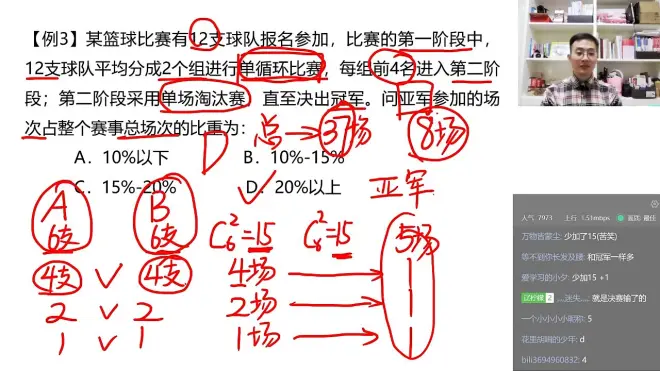 【例3】某篮球比赛有12支球队报名参加，比赛的第一阶段中，
12支球队平均分成2个组进行单循环比赛，每组前4名进入第二阶
段；第二阶段采用单场淘汰赛 直至决出冠军。问亚军参加的场
次占整个赛事总场次的比重为：
总→37场 8场
A．10%以下 B．10%-15%
C．15%-20% D．20%以上
D
亚军
A B
6支 6支 C₆²=15 C₆²=15 5场
4支 ✓ 4支 4场 → 1
2 ✓ 2 2场 → 1
1 ✓ 1 1场 → 1
人气: 7973 上行: 1.53mbps 返回: 最佳
万物皆蒙尘: 少加了15(苦笑)
等不到你长发及腰: 和冠军一样多
爱学习的小夕: 少加15 +1
2 就是决赛输了的
一个小小小小昵称: 5
花里胡哨的少年: d
bili3694960832: 4